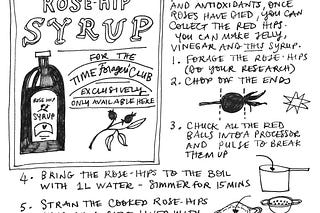 ROSE-HIP
SYRUP
FOR THE
TIME Forager's CLUB
EXCLUSIVELY
ONLY AVAILABLE HERE
ROSE HIP
SYRUP
AND ANTIOXIDANTS, ONCE
ROSES HAVE DIED, YOU CAN
COLLECT THE RED HIPS.
YOU CAN MAKE JELLY,
VINEGAR AND THIS SYRUP.
1. FORAGE THE ROSE-HIPS
(DO YOUR RESEARCH)
2. CHOP OFF THE ENDS
3. CHUCK ALL THE RED
BALLS INTO A PROCESSOR
AND PULSE TO BREAK
THEM UP
4. BRING THE ROSE-HIPS TO THE BOIL
WITH 1L WATER - SIMMER FOR 15 MINS
5. STRAIN THE COOKED ROSE-HIPS